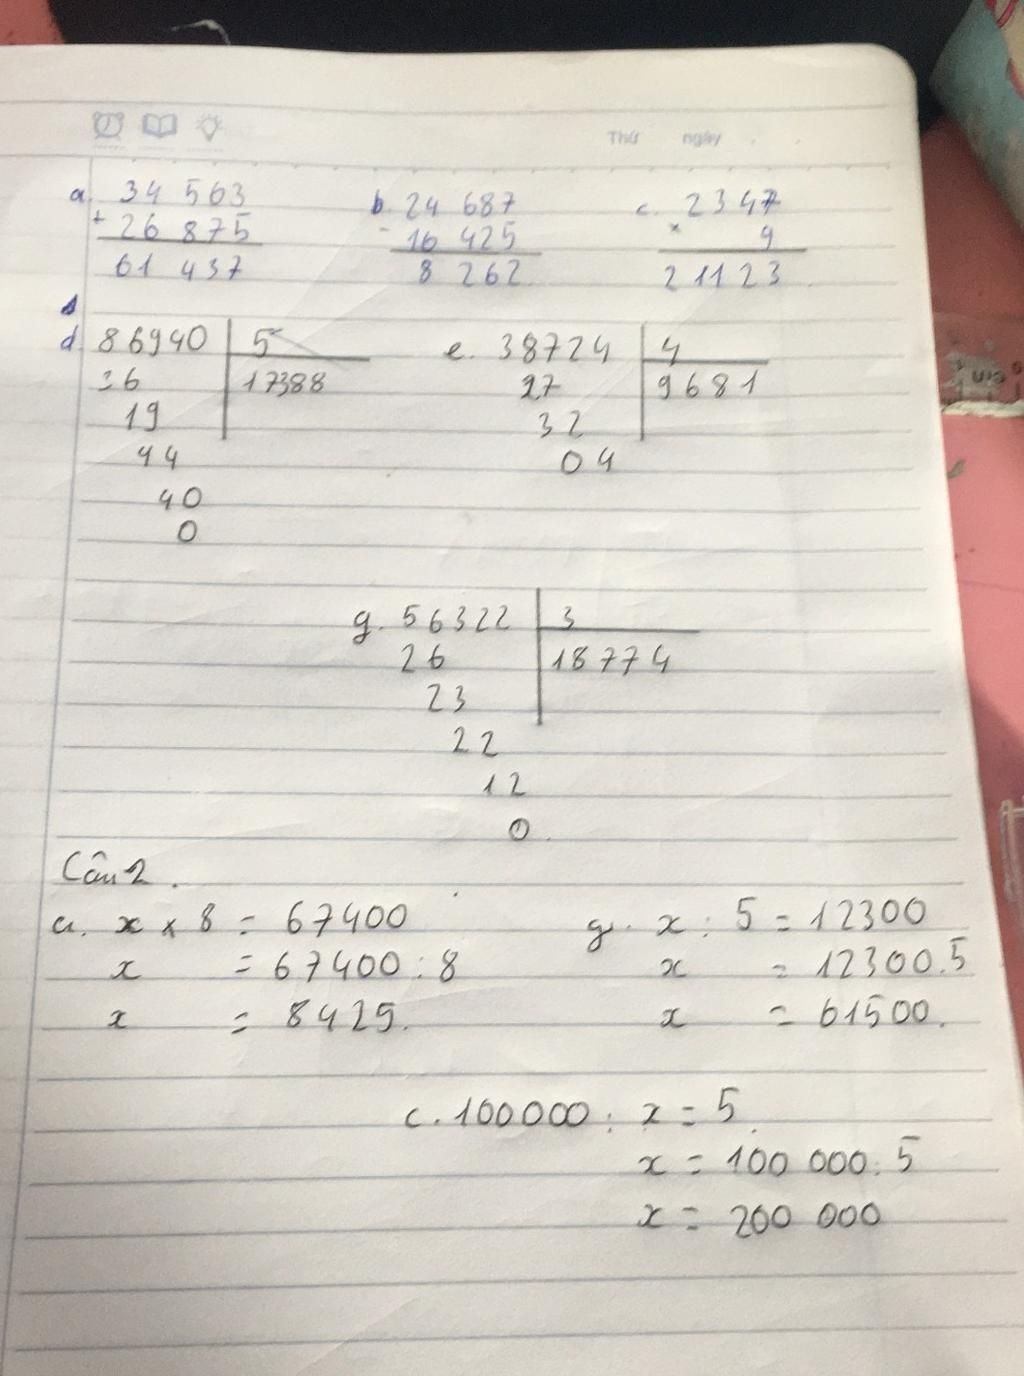 Thứ ngày
a. 34 563 b. 24 687 c. 2347
+ 26 875 - 16 425 × 9
61 437 8 262 21123
d 86940 5 e. 38724 4
36 17388 27 9681
19 32
44 04
40
0
g. 56322 3
26 18774
23
22
12
0
Câu 2.
a. x × 8 = 67400 g. x : 5 = 12300
x = 67400 : 8 x = 12300.5
x = 8425. x = 61500.
c. 100000 : x = 5
x = 100 000 : 5
x = 200 000